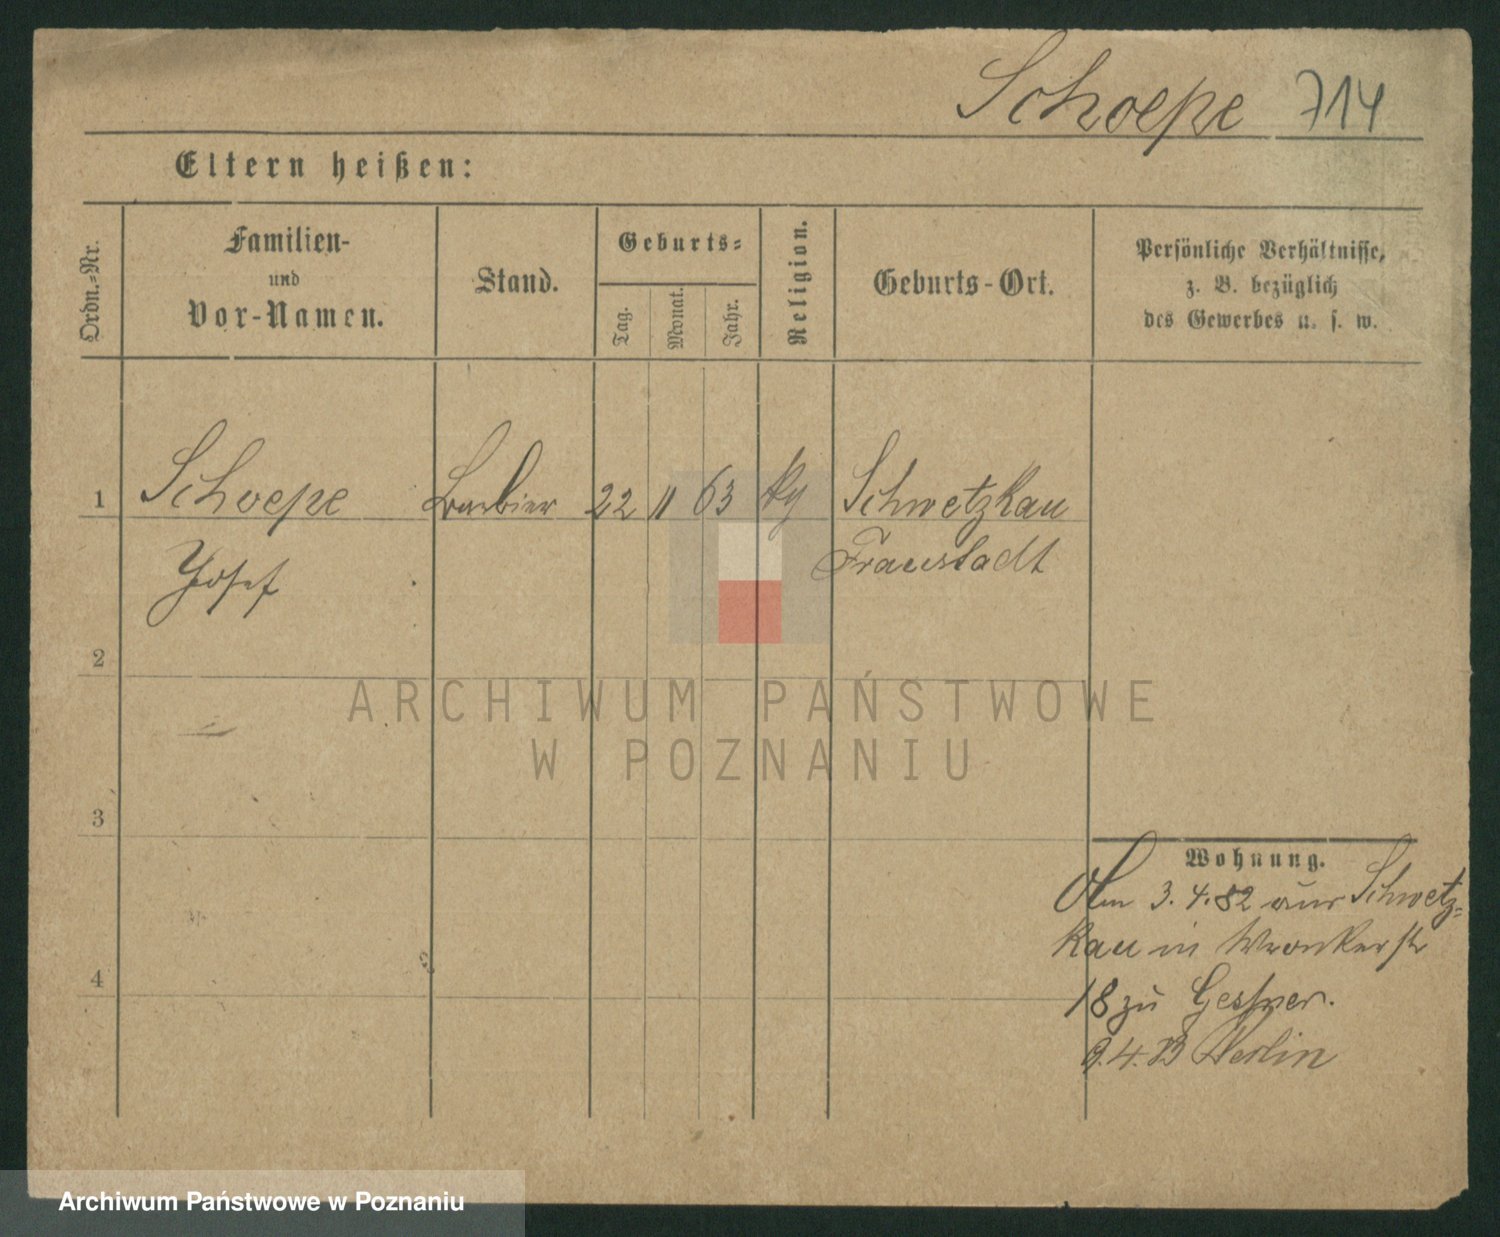 Schoepe 714
Eltern heißen:
Ordn.-Nr.
Familien-
und
Vor-Namen.
Stand.
Geburts-
Tag.
Monat.
Jahr.
Religion.
Geburts-Ort.
Persönliche Verhältnisse,
z. B. bezüglich
des Gewerbes u. s. w.
1 Schoepe Barbier 22 11 63 Schwetzkau
Josef Fraustadt
2
ARCHIWUM PAŃSTWOWE
W POZNANIU
3
Wohnung.
3.4.82 aus Schwetz-
kau in Wronkerstr
18 zu Gessner.
9.4.83 Berlin
4
Archiwum Państwowe w Poznaniu